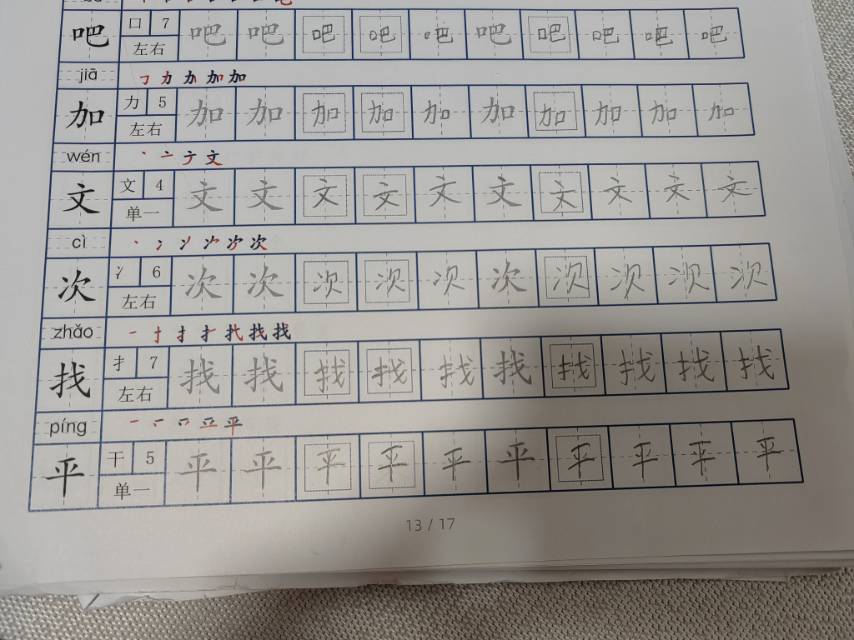 吧 口 7 吧 吧 吧 吧 吧 吧 吧 吧 吧 吧
左右
jiā
加 力 5 加 加 加 加 加 加 加 加 加 加
左右
wén
文 文 4 文 文 文 文 文 文 文 文 文 文
单一
cì 次
次 冫 6 次 次 次 次 次 次 次 次 次 次
左右
zhǎo 找 找
找 扌 7 找 找 找 找 找 找 找 找 找 找
左右
píng 平
平 干 5 平 平 平 平 平 平 平 平 平 平
单一
13 / 17